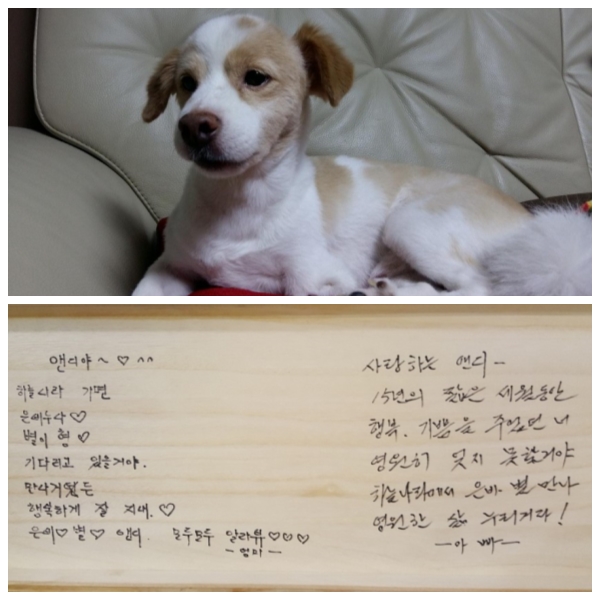 앤디야~♡^^
하늘나라 가면
은비누나♡
별이 형♡
기다리고 있을거야.
만나거들랑
행복하게 잘 지내.♡
은비♡별♡앤디. 모두모두 알라뷰♡♡♡
-엄마-
사랑하는 앤디-
15년의 짧은 세월동안
행복, 기쁨을 주었던 너
영원히 잊지 못할거야
하늘나라에서 은비. 별 만나
영원한 삶 누리거라!
-아빠-